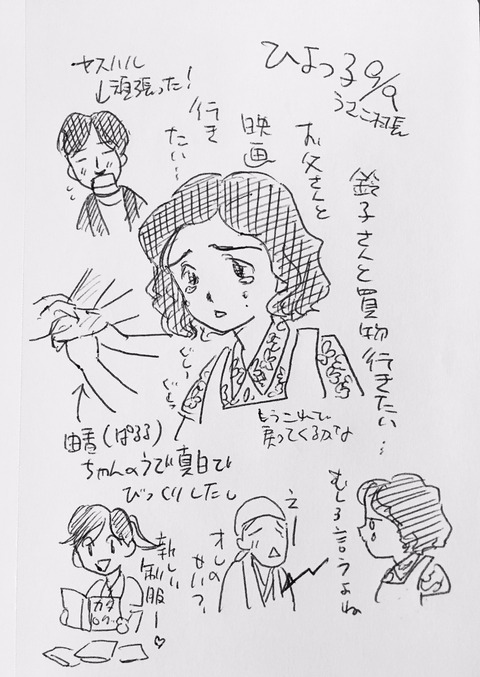 ひよっこ 9/9
うさこ村長
ヤスハル
↓頑張った!
鈴子さんと買物行きたい…
お父さんと
映画
行き
たい…
もうこれで
戻ってくるかな
由香(ぱるる)
ちゃんのうで真白で
びっくりしたし
むしろ言うよね
えー
オレの
せい?
新しい
制服ー♡
カタ
ログ